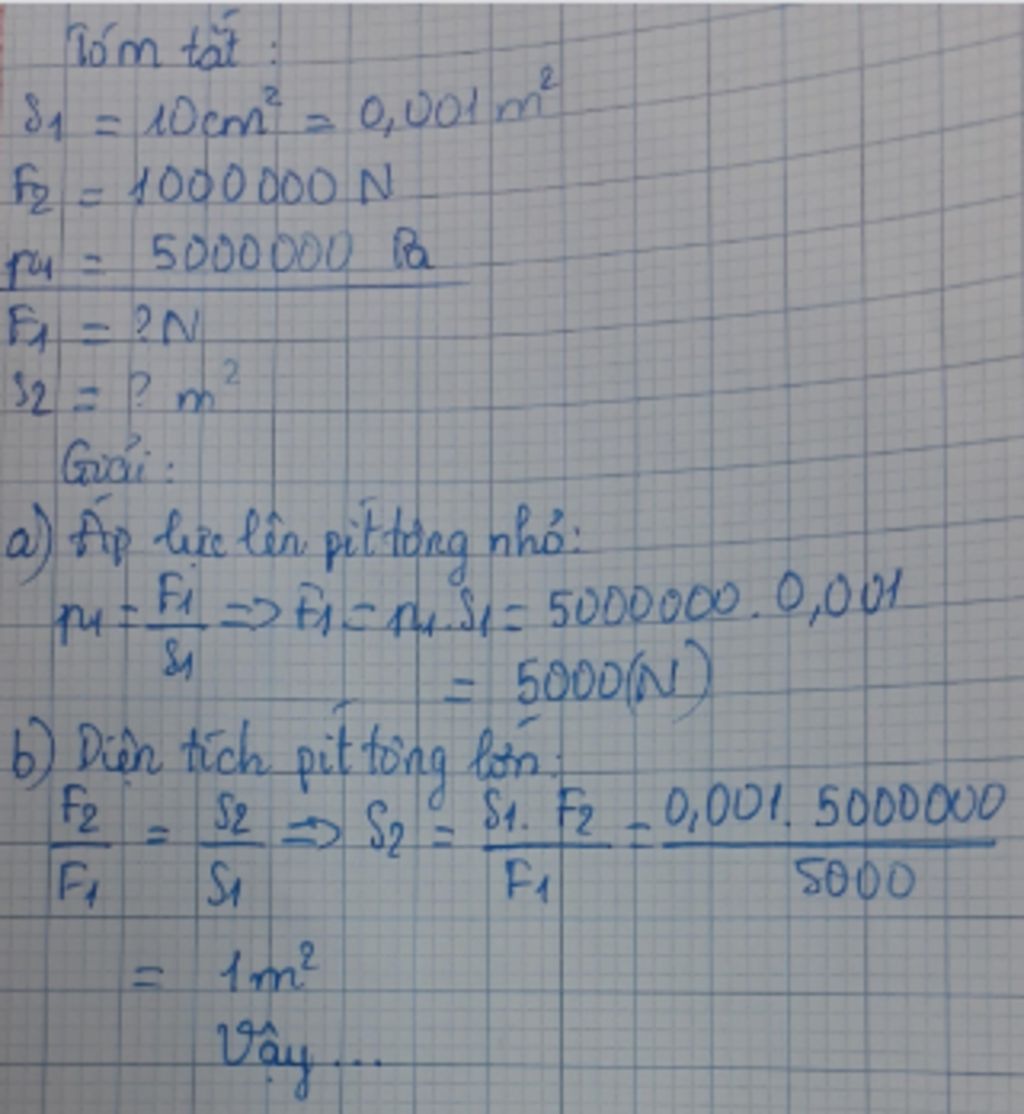 Tóm tắt :
S1 = 10cm² = 0,001 m²
F2 = 1000000 N
p1 = 5000000 Pa
F1 = ? N
S2 = ? m²
Giải :
a) Áp lực lên pít tông nhỏ:
p1 = F1/S1 => F1 = p1.S1 = 5000000 . 0,001
= 5000(N)
b) Diện tích pít tông lớn:
F2/F1 = S2/S1 => S2 = S1. F2/F1 = 0,001. 5000000/5000
= 1m²
Vậy ...